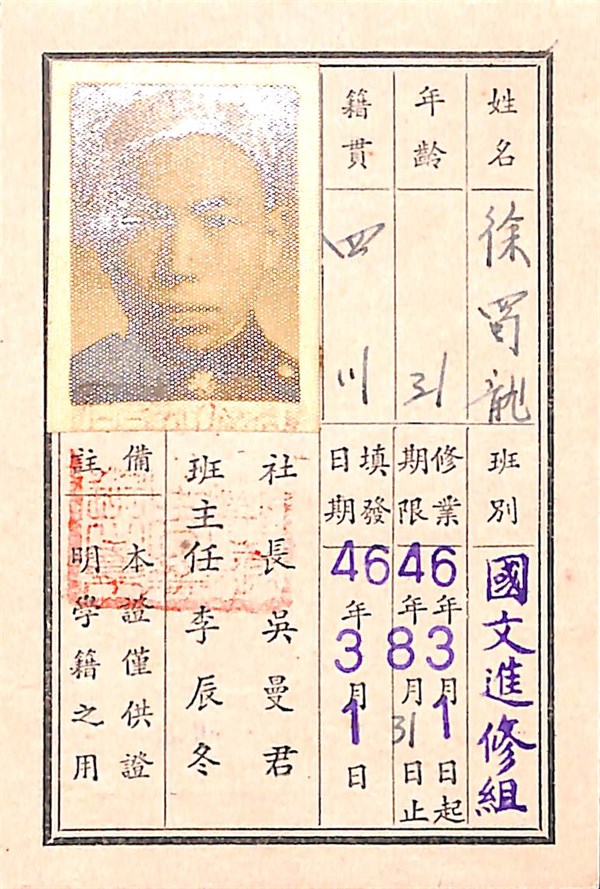 姓名 徐蜀龍
班別 國文進修組
年齡 31
修業期限 46年3月1日起
46年8月31日止
籍貫 四川
填發日期 46年3月1日
社長吳曼君
班主任李辰冬
備註 本證僅供證
明學籍之用